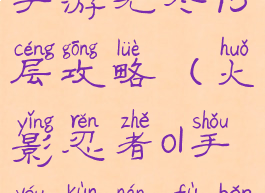 céng gōng lüè huǒ
层攻略(火
yǐng rěn zhě shǒu
影忍者ol手